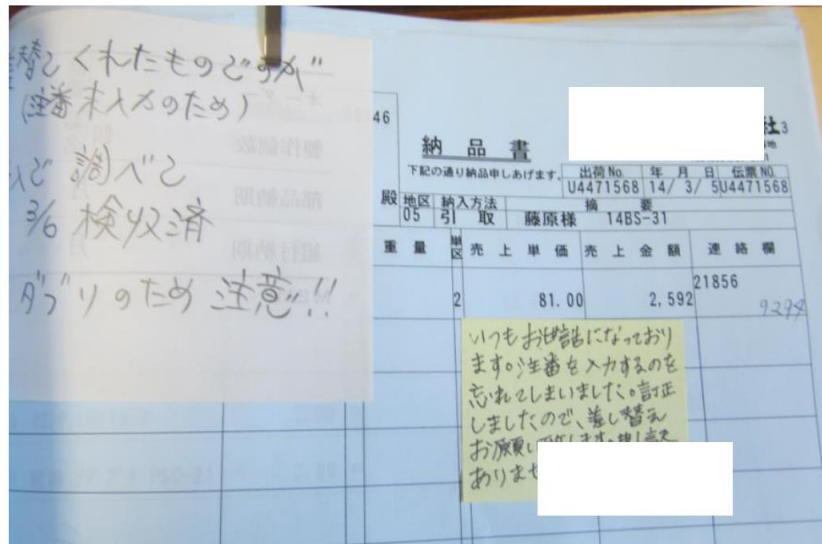 替えてくれたものですが
(注番未入力のため)
で調べて
3/6 検収済
ダブりのため注意!!
46
納品書
社3
下記の通り納品申しあげます。
出荷No. 年月日 伝票NO.
U4471568 14/ 3/ 5 U4471568
殿 地区 納入方法 摘要
05 引取 藤原様 14BS-31
重量 単区 売上単価 売上金額 連絡欄
21856
2 81.00 2,592
9294
いつもお世話になっており
ます。注番を入力するのを
忘れてしまいました。訂正
しましたので、差し替え
お願い致します。申し訳
ありませ